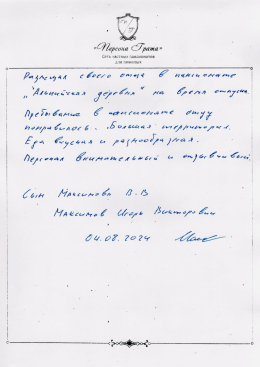 «Персона Грата»
Сеть частных пансионатов
для пожилых
Размещал своего отца в пансионате
„Альпийская деревня" на время отпуска.
Пребывание в пансионате отцу
понравилось. Большая территория.
Еда вкусная и разнообразная.
Персонал внимательный и отзывчивый.
Сын Максимова В.В
Максимов Игорь Викторович
04.08.2024